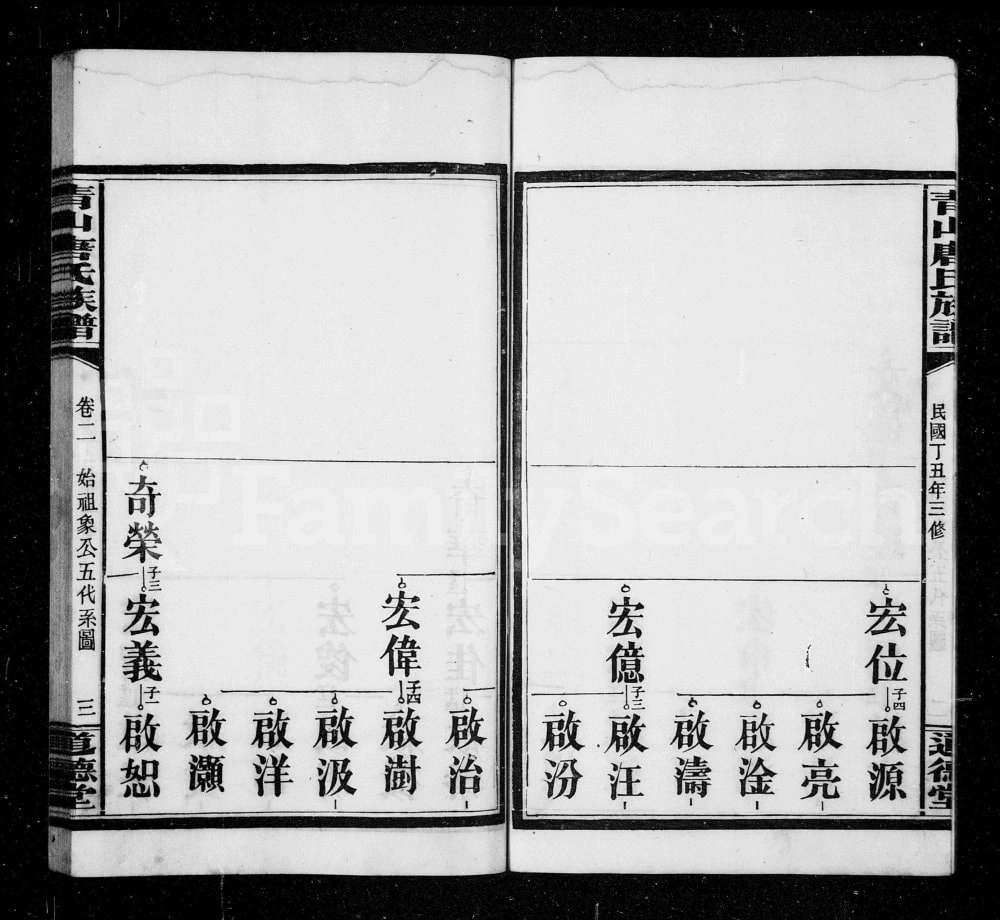 青山唐氏族譜
民國丁丑年三修
道德堂
宏位
子四
啟源
啟亮
啟淦
啟濤
宏億
子三
啟汪
啟汾
啟治
宏偉
子四
啟澍
啟汲
啟洋
啟灝
奇榮
子三
宏義
子一
啟恕
青山唐氏族譜
卷二 始祖象公五代系圖
三
道德堂
FamilySearch